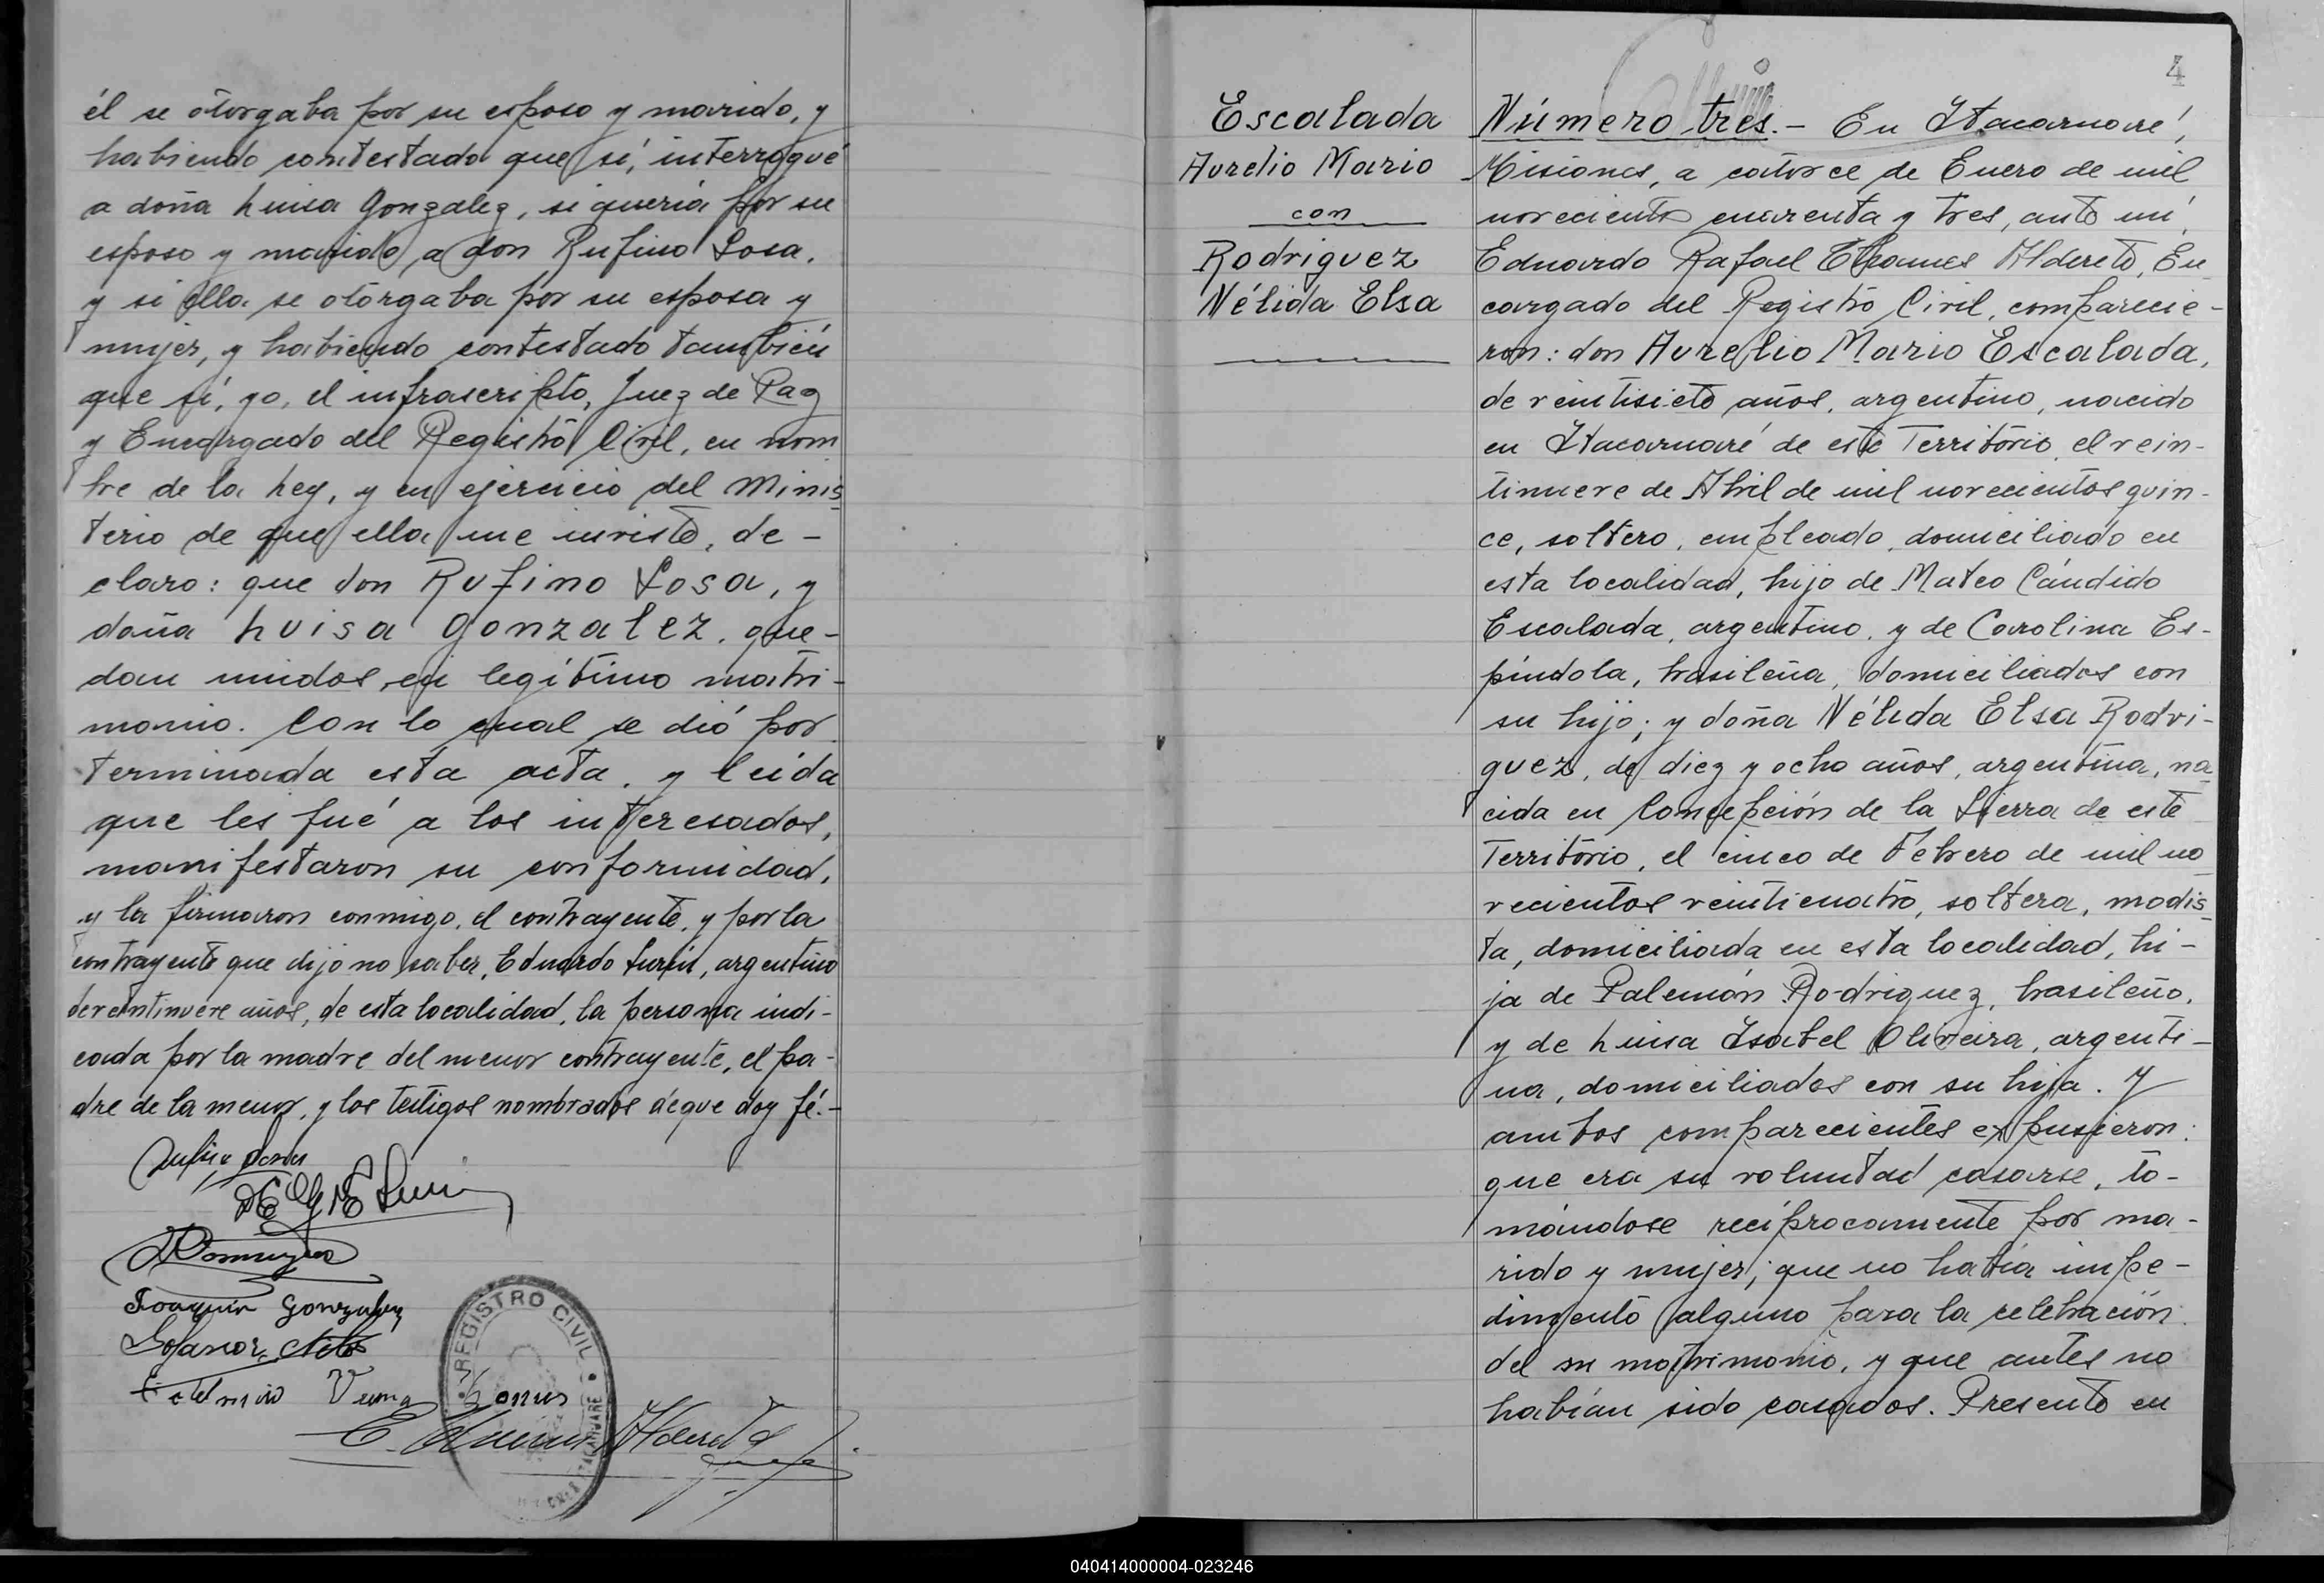 él se otorgaba por su esposo y marido, y
habiendo contestado que sí, interrogué
a doña Luisa Gonzalez, si quería por su
esposo y marido a don Rufino Sosa,
y si ella se otorgaba por su esposa y
mujer, y habiendo contestado también
que sí, yo, el infrascripto, Juez de Paz
y Encargado del Registro Civil, en nom
bre de la Ley, y en ejercicio del Minis
terio de que ella me inviste, de-
claro: que don Rufino Sosa, y
doña Luisa Gonzalez, que-
dan unidos en legítimo matri-
monio. Con lo cual se dió por
terminada esta acta, y leida
que les fué a los interesados,
manifestaron su conformidad,
y la firmaron conmigo, el contrayente, y por la
contrayente que dijo no saber, Eduardo, argentino
de veintinueve años, de esta localidad, la persona indi-
cada por la madre del menor contrayente, el pa-
dre de la menor, y los testigos nombrados de que doy fé.-
Joaquin Gonzalez
REGISTRO CIVIL
4
Escalada
Aurelio Mario
con
Rodriguez
Nélida Elsa
Número tres.- En Itacaruaré,
Misiones, a catorce de Enero de mil
novecientos cuarenta y tres, ante mí,
Eduardo Rafael Alderete, En
cargado del Registro Civil, comparecie-
ron: don Aurelio Mario Escalada,
de veintisiete años, argentino, nacido
en Itacaruaré de este Territorio, el vein-
tinueve de Abril de mil novecientos quin-
ce, soltero, empleado, domiciliado en
esta localidad, hijo de Mateo Cándido
Escalada, argentino, y de Carolina Es-
píndola, brasileña, domiciliados con
su hijo; y doña Nélida Elsa Rodri-
guez, de diez y ocho años, argentina, na
cida en Concepción de la Sierra de este
Territorio, el cinco de Febrero de mil no
vecientos veinticuatro, soltera, modis
ta, domiciliada en esta localidad, hi-
ja de Palemón Rodriguez, brasileño,
y de Luisa Isabel Oliveira, argenti-
na, domiciliados con su hija. Y
ambos comparecientes expusieron:
que era su voluntad casarse, to-
mándose recíprocamente por ma-
rido y mujer; que no había impe-
dimento alguno para la celebración
del su matrimonio, y que antes no
habían sido casados. Presente en
040414000004-023246